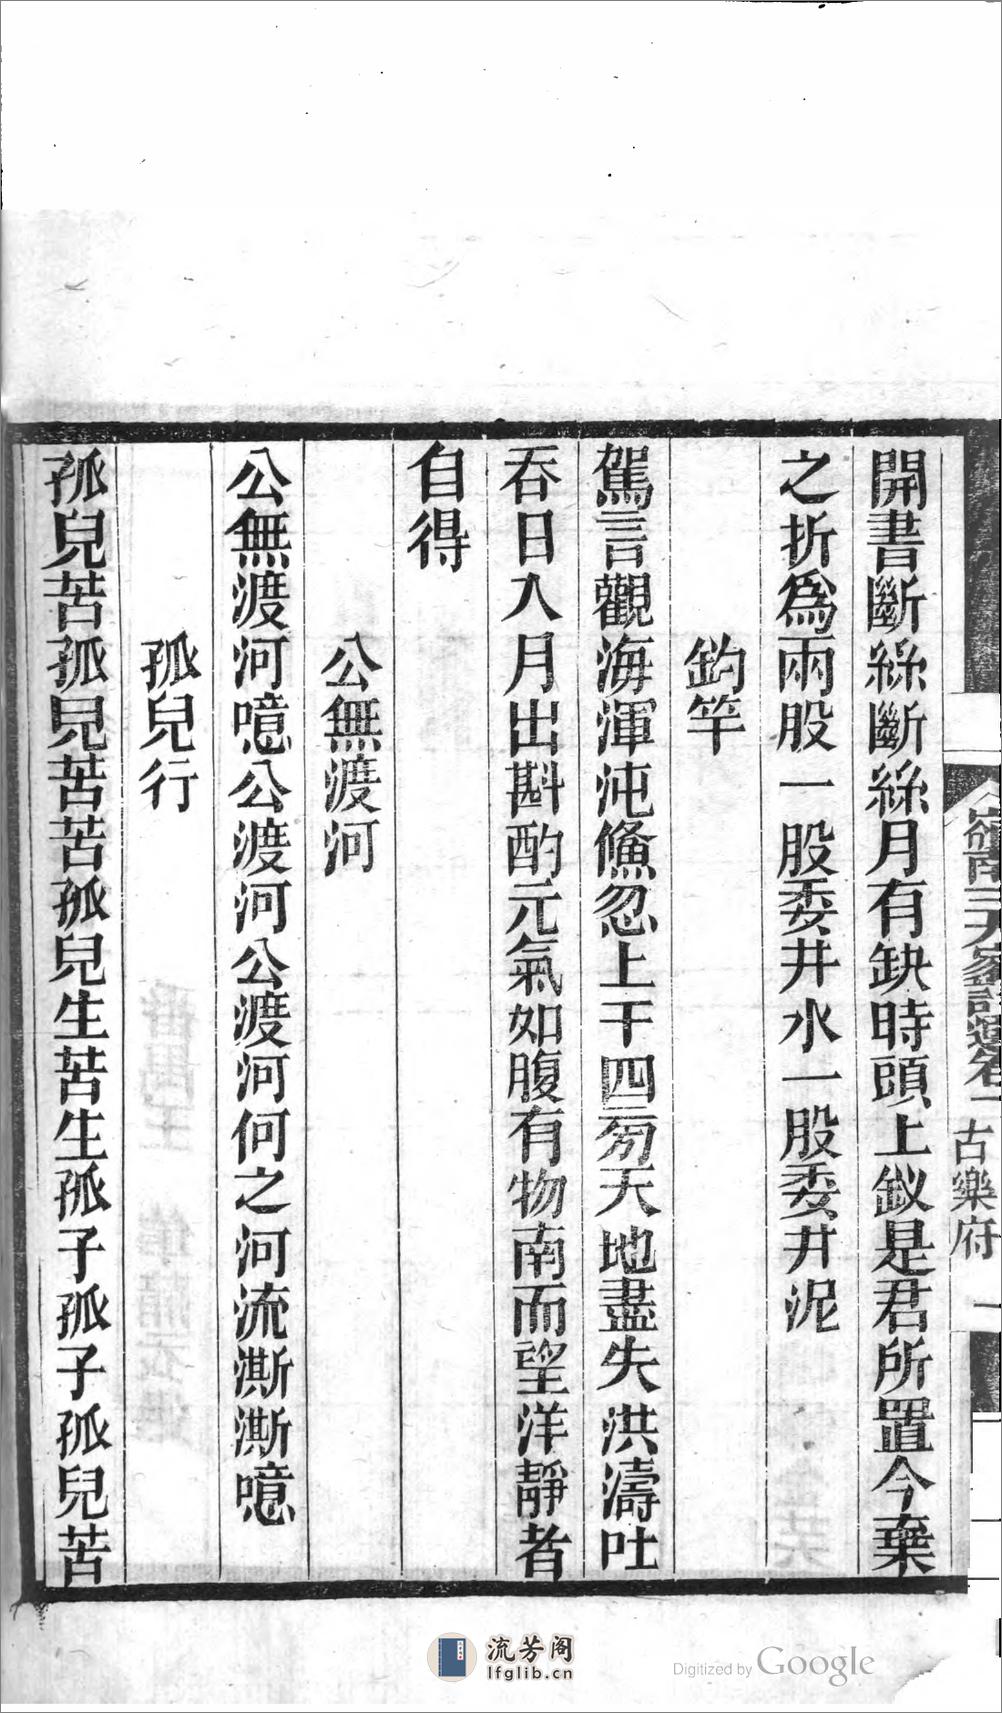 開書斷絲斷絲月有缺時頭上釵是君所置今棄
之折爲兩股一股委井水一股委井泥
釣竿
駕言觀海渾沌儵忽上干四旁天地盡失洪濤吐
吞日入月出斟酌元氣如腹有物南而望洋靜者
自得
公無渡河
公無渡河噫公渡河公渡河何之河流澌澌噫
孤兒行
孤兒苦孤兒苦苦孤兒生苦生孤子孤子孤兒苦
嶺南三大家詩選卷一
古樂府
一
流芳阁
lfglib.cn
Digitized by Google